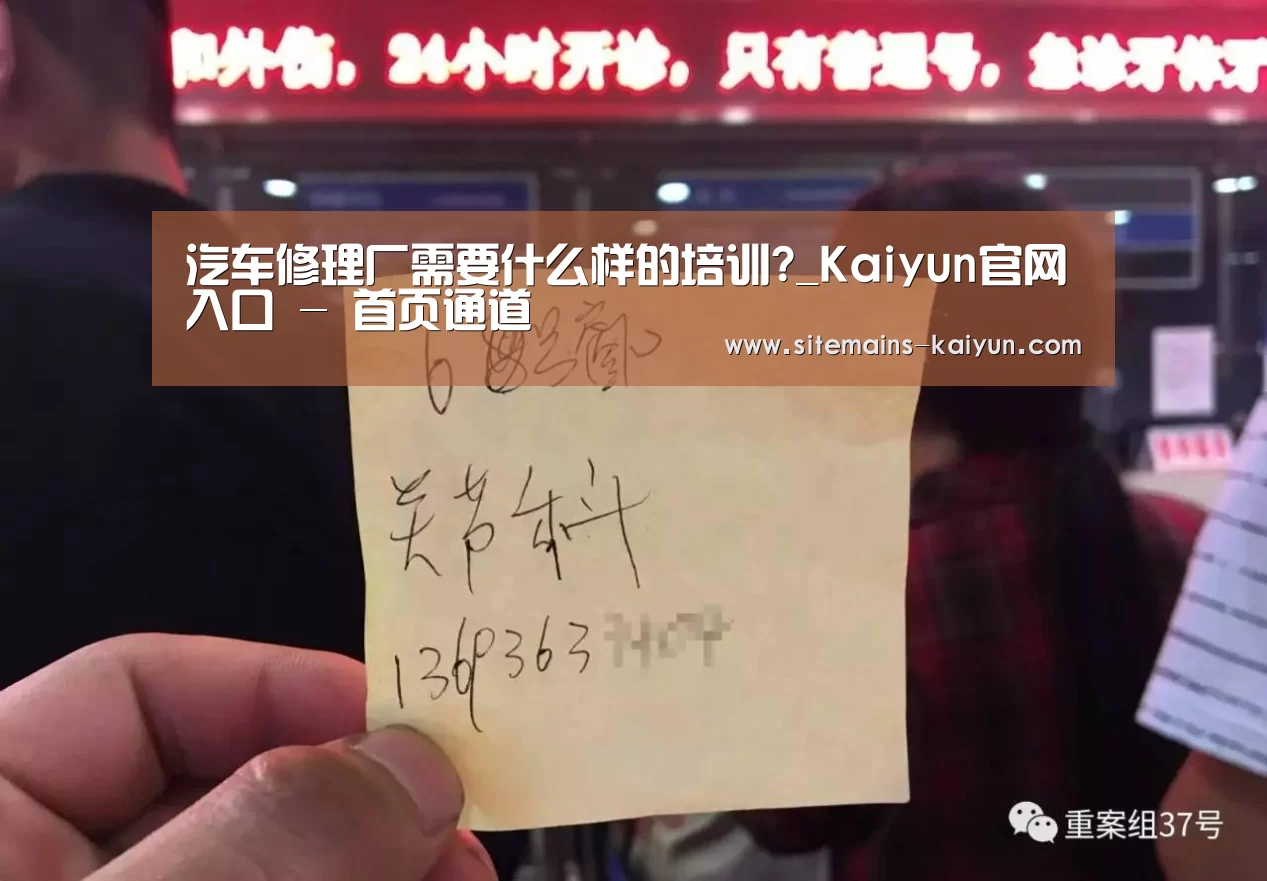 和外伤，24小时开诊，只有普通号，急诊牙体牙
汽车修理厂需要什么样的培训?_Kaiyun官网
入口 - 首页通道
www.sitemains-kaiyun.com
关节科
1369363
重案组37号